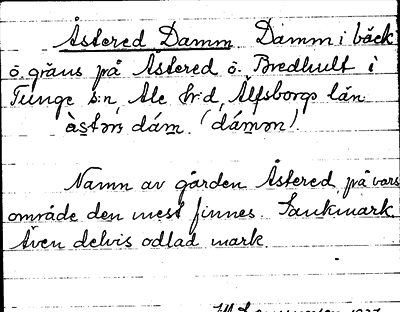 Åstered Damm Damm i bäck
ö. gräns på Åstered ö. Bredhult i
Tunge s:n, Ale h:d, Älfsborgs län
dám. (dámən).
Namn av gården Åstered, på vars
område den mest finnes. Sankmark.
Även delvis odlad mark.